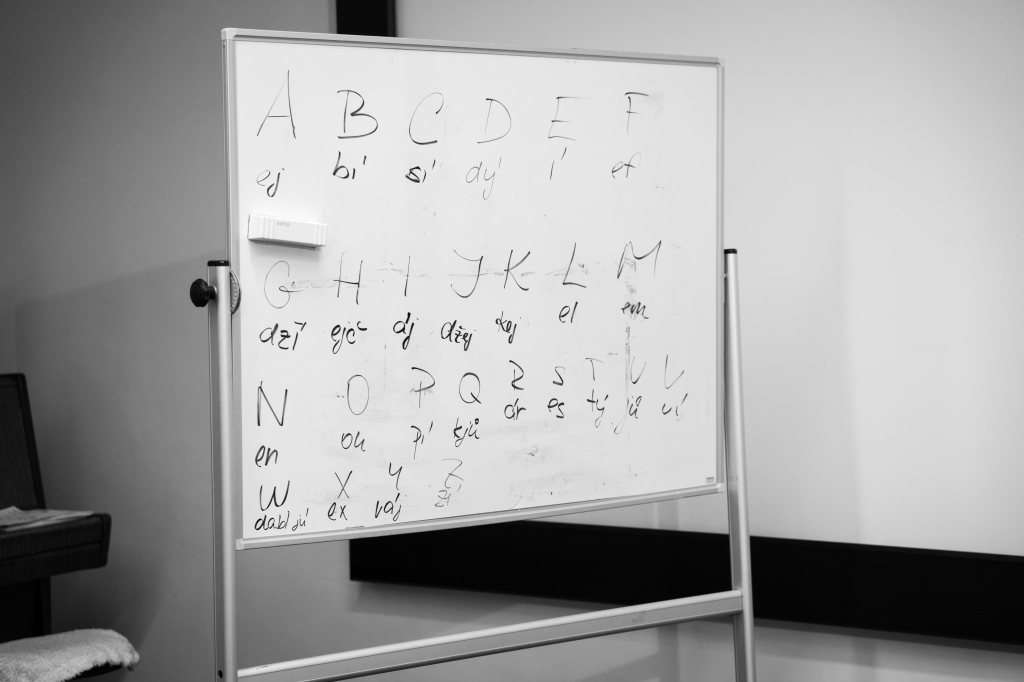 A B C D E F
ej bí sí dý í ef
G H I J K L M
dží ejč áj džej kej el em
N O P Q R S T U V
en ou pí kjů ár es tý jů ví
W X Y Z
dabl jů ex váj zí